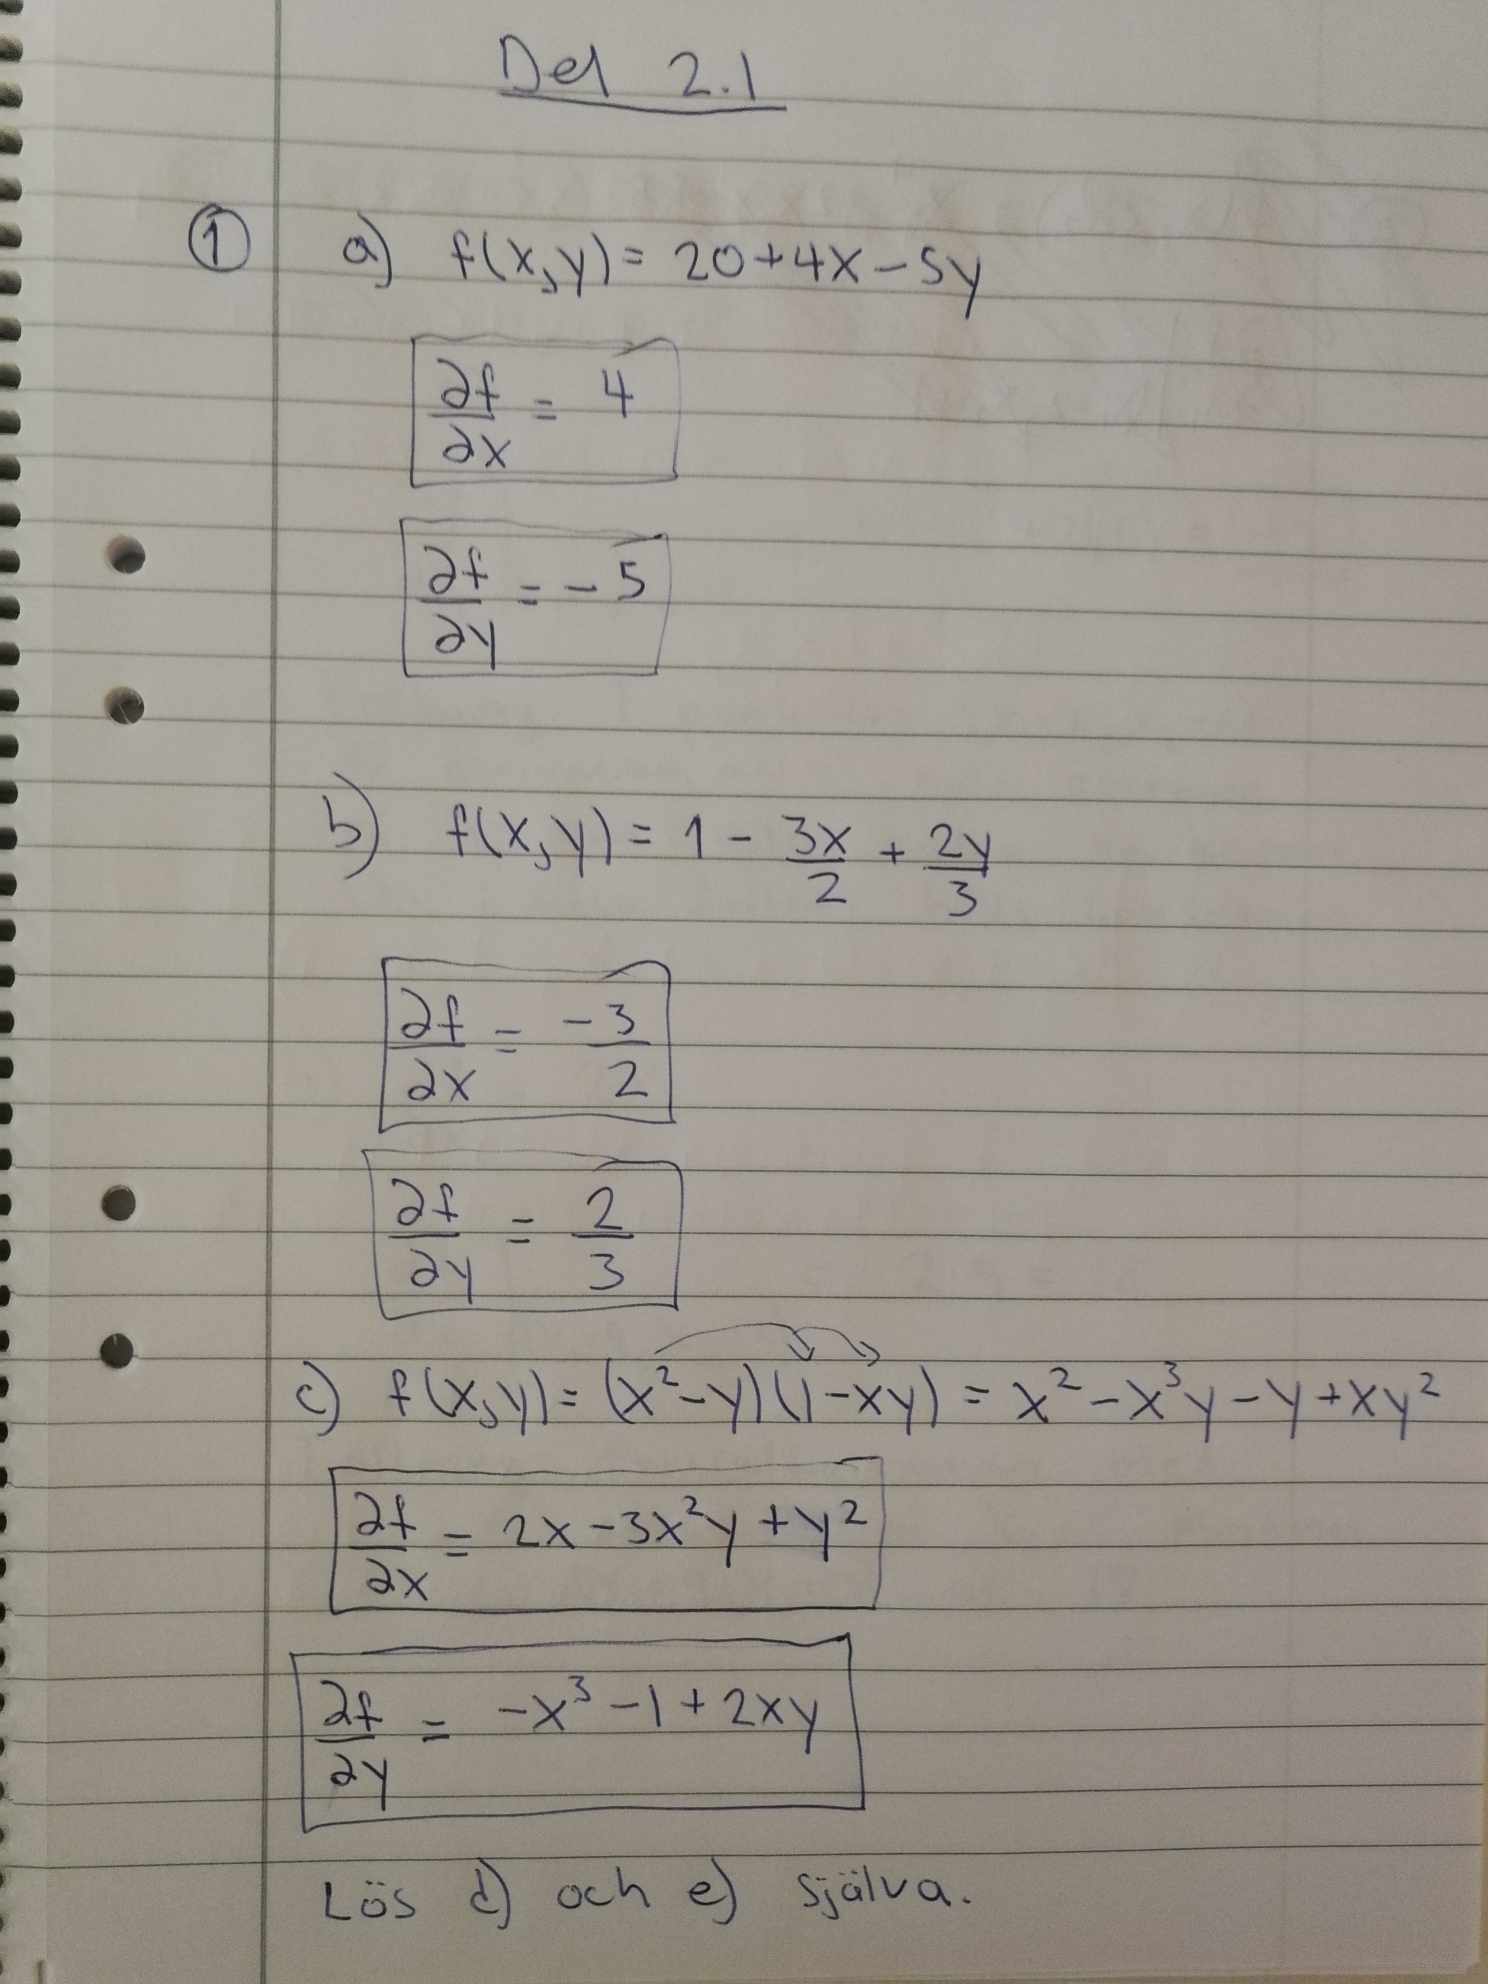 Del 2.1
① a) f(x,y) = 20+4x-5y
∂f/∂x = 4
∂f/∂y = -5
b) f(x,y) = 1 - 3x/2 + 2y/3
∂f/∂x = -3/2
∂f/∂y = 2/3
c) f(x,y) = (x²-y)(1-xy) = x²-x³y-y+xy²
∂f/∂x = 2x-3x²y+y²
∂f/∂y = -x³-1+2xy
Lös d) och e) själva.